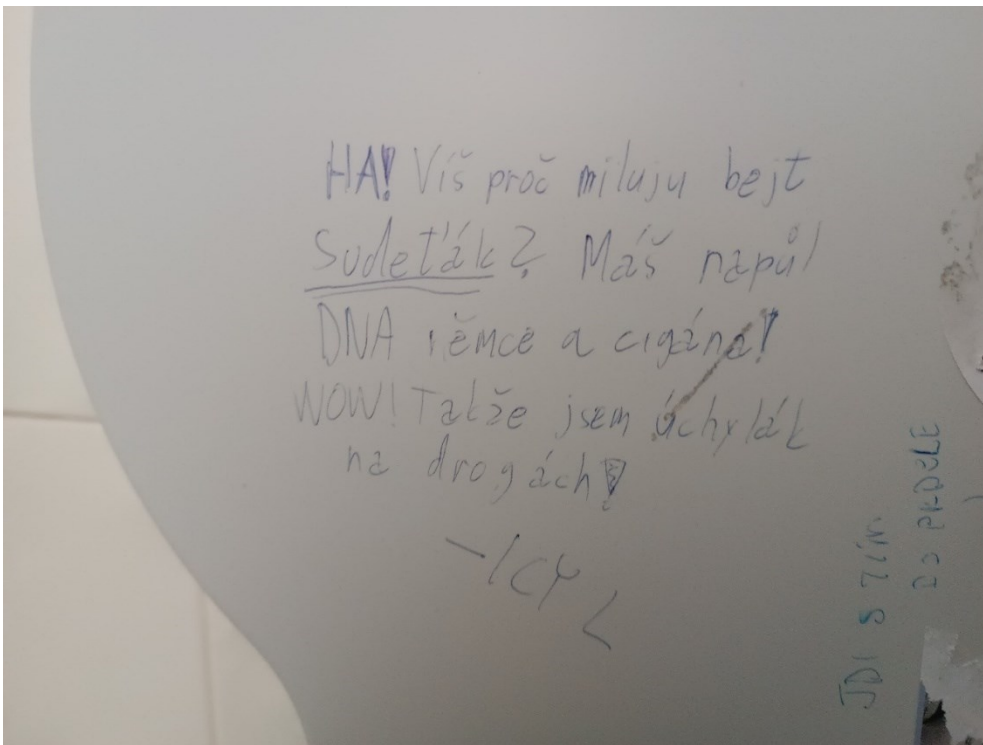 HA! Víš proč miluju bejt
Sudeťák? Máš napůl
DNA němce a cigána!
WOW! Takže jsem úchylák
na drogách!
-ICY
JDI S TÍM
DO PRDELE